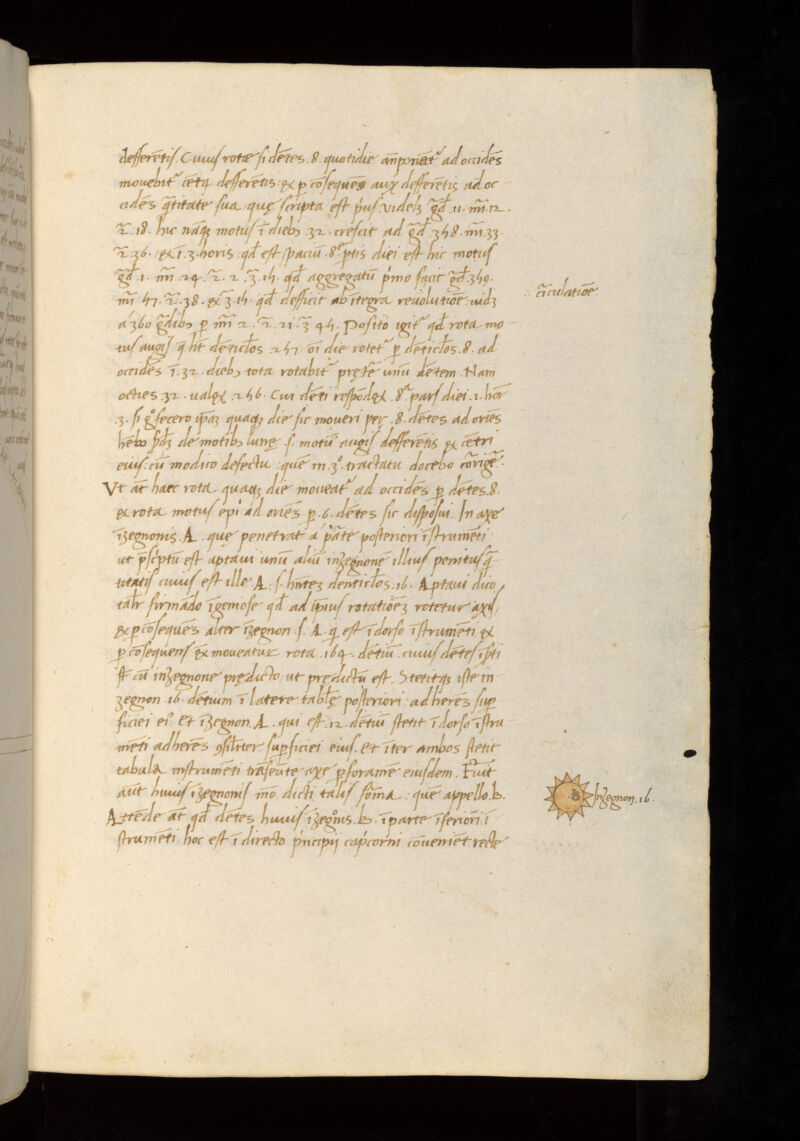 defferētis. Cuius rotae si dētes. 8. quotidie ad occidēs
movebit᷑ defferētis & p cōsequēs aux defferētis ad oc-
cidēs q̄titate sua que scripta est p'us videlz gd̄. 11. m̄. 12.
2̄. 18. hic nāq motus ī dieb3 32. crescit ad gd̄. 348. m̄. 33.
2̄. 36. & ī. 3. horis qd̄ est spaciū. 8ᵉ ptis diei est hic motus
gd̄. 1. m̄. 24. 2̄. 2. 3̄. 15. qd̄ aggregatū p'mo facit gd̄. 349.
m̄ 57. 2̄. 38. & 3̄. 15. qd̄ defficit ab itegra revolutiōe videlz
a 360 gdib3 p m̄ 2. 2̄. 21. 3̄ 45. Posito igit᷑ qd̄ rota mo-
tus augis q̄ ht̄ dēticlos 257. oī die rotet᷑ p dēticlos. 8. ad
occidēs ī. 32. dieb3 tota rotabit᷑ pręter unū dētem. Nam
octies 32. valēt 256. Cui dēti respōdet 8ᵃ pars diei. 1. hor̄
3. si gº fecero ipaz quaq die sic moveri per. 8. dētes ad oriēs
hēbo de motib3 lunę. s. motū augis defferētis & cētri
eius cū modico defectu quē in 3º tractatu docebo corrigē.
Ut at̄ haec rota quaq die moveat᷑ ad occidēs p dētes. 8.
& rota motus epi ad oriēs p. 6. dētes sic disposui. In axe
īzegnonis. A. quę penetrat a p̄te posteriori īstrumēti
ut p'scptū est aptavi unū aliū inzegnonē illius penitus q̄-
titatis cuius est ille A. s. hntez denticlos. 16. Aptavi dico
talr̄ firmādo īgeniose qd̄ ad unius rotatiōez rotetur axis
& p cōsequēs alter īzegnon. s. A. q est ī dorso īstrumēti &
p cōsequens moveatur rota 164. dētiū cuius dētes
st̄ cū inzegnone prędicto ut prędictū est. Stetitq iste in-
zegnon 16. dētium ī latere tablę posteriori adherēs sup-
ficiei ei⁹. Et īzegnon A. qui est. 12. dētiū stetit ī dorso īstru-
mēti adherēs ɔsilr̄iter supficiei eius. Et īter ambos stetit
tabula instrumēti trāseūte axe p foramē eiusdem. Fuit
aūt huius īzegnonis mō dicti talis fōma quē appello. b.
Attēde at̄ qd̄ dētes huius īzegºnis. b. ī parte īferiori ī-
strumēti hoc est ī directo p'ncipii cap'corni cōveniēt recte
:: c̄irculatiōe
B
Inzegnon. 16.